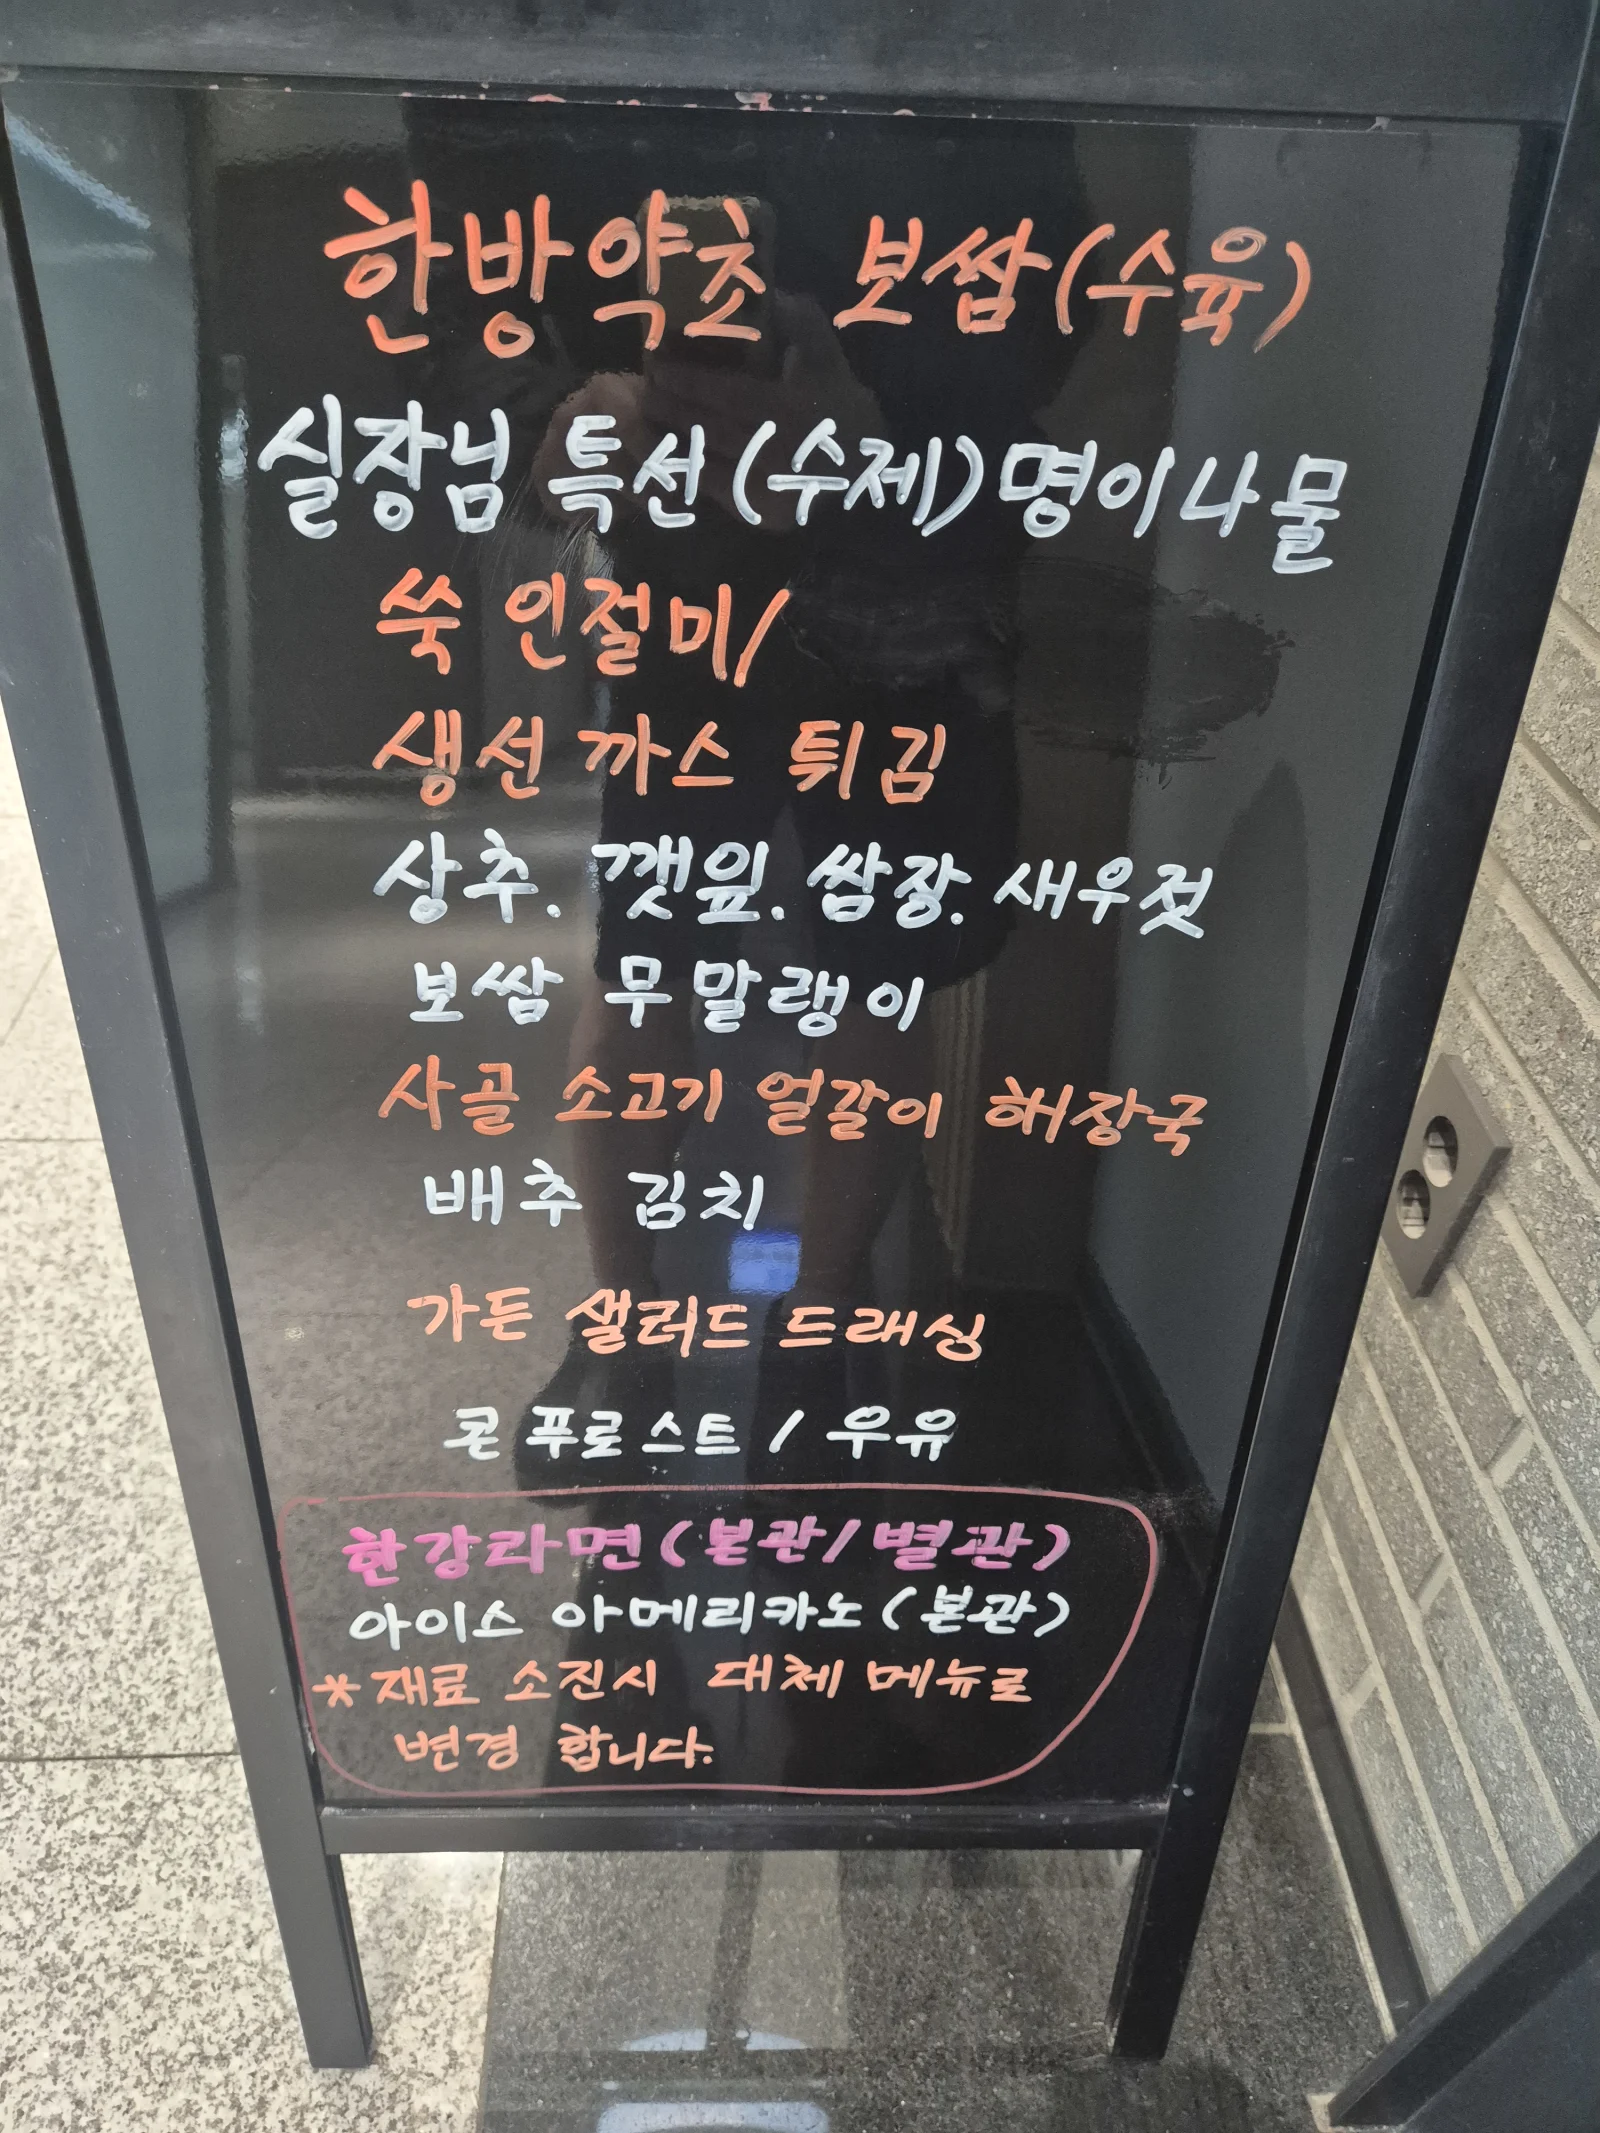 한방약초 보쌈(수육)
실장님 특선(수제)명이나물
쑥 인절미/
생선까스 튀김
상추. 깻잎. 쌈장. 새우젓
보쌈 무말랭이
사골 소고기 얼갈이 해장국
배추 김치
가든 샐러드 드래싱
콘푸로스트 / 우유
한강라면(본관/별관)
아이스 아메리카노(본관)
*재료 소진시 대체 메뉴로
변경 합니다.